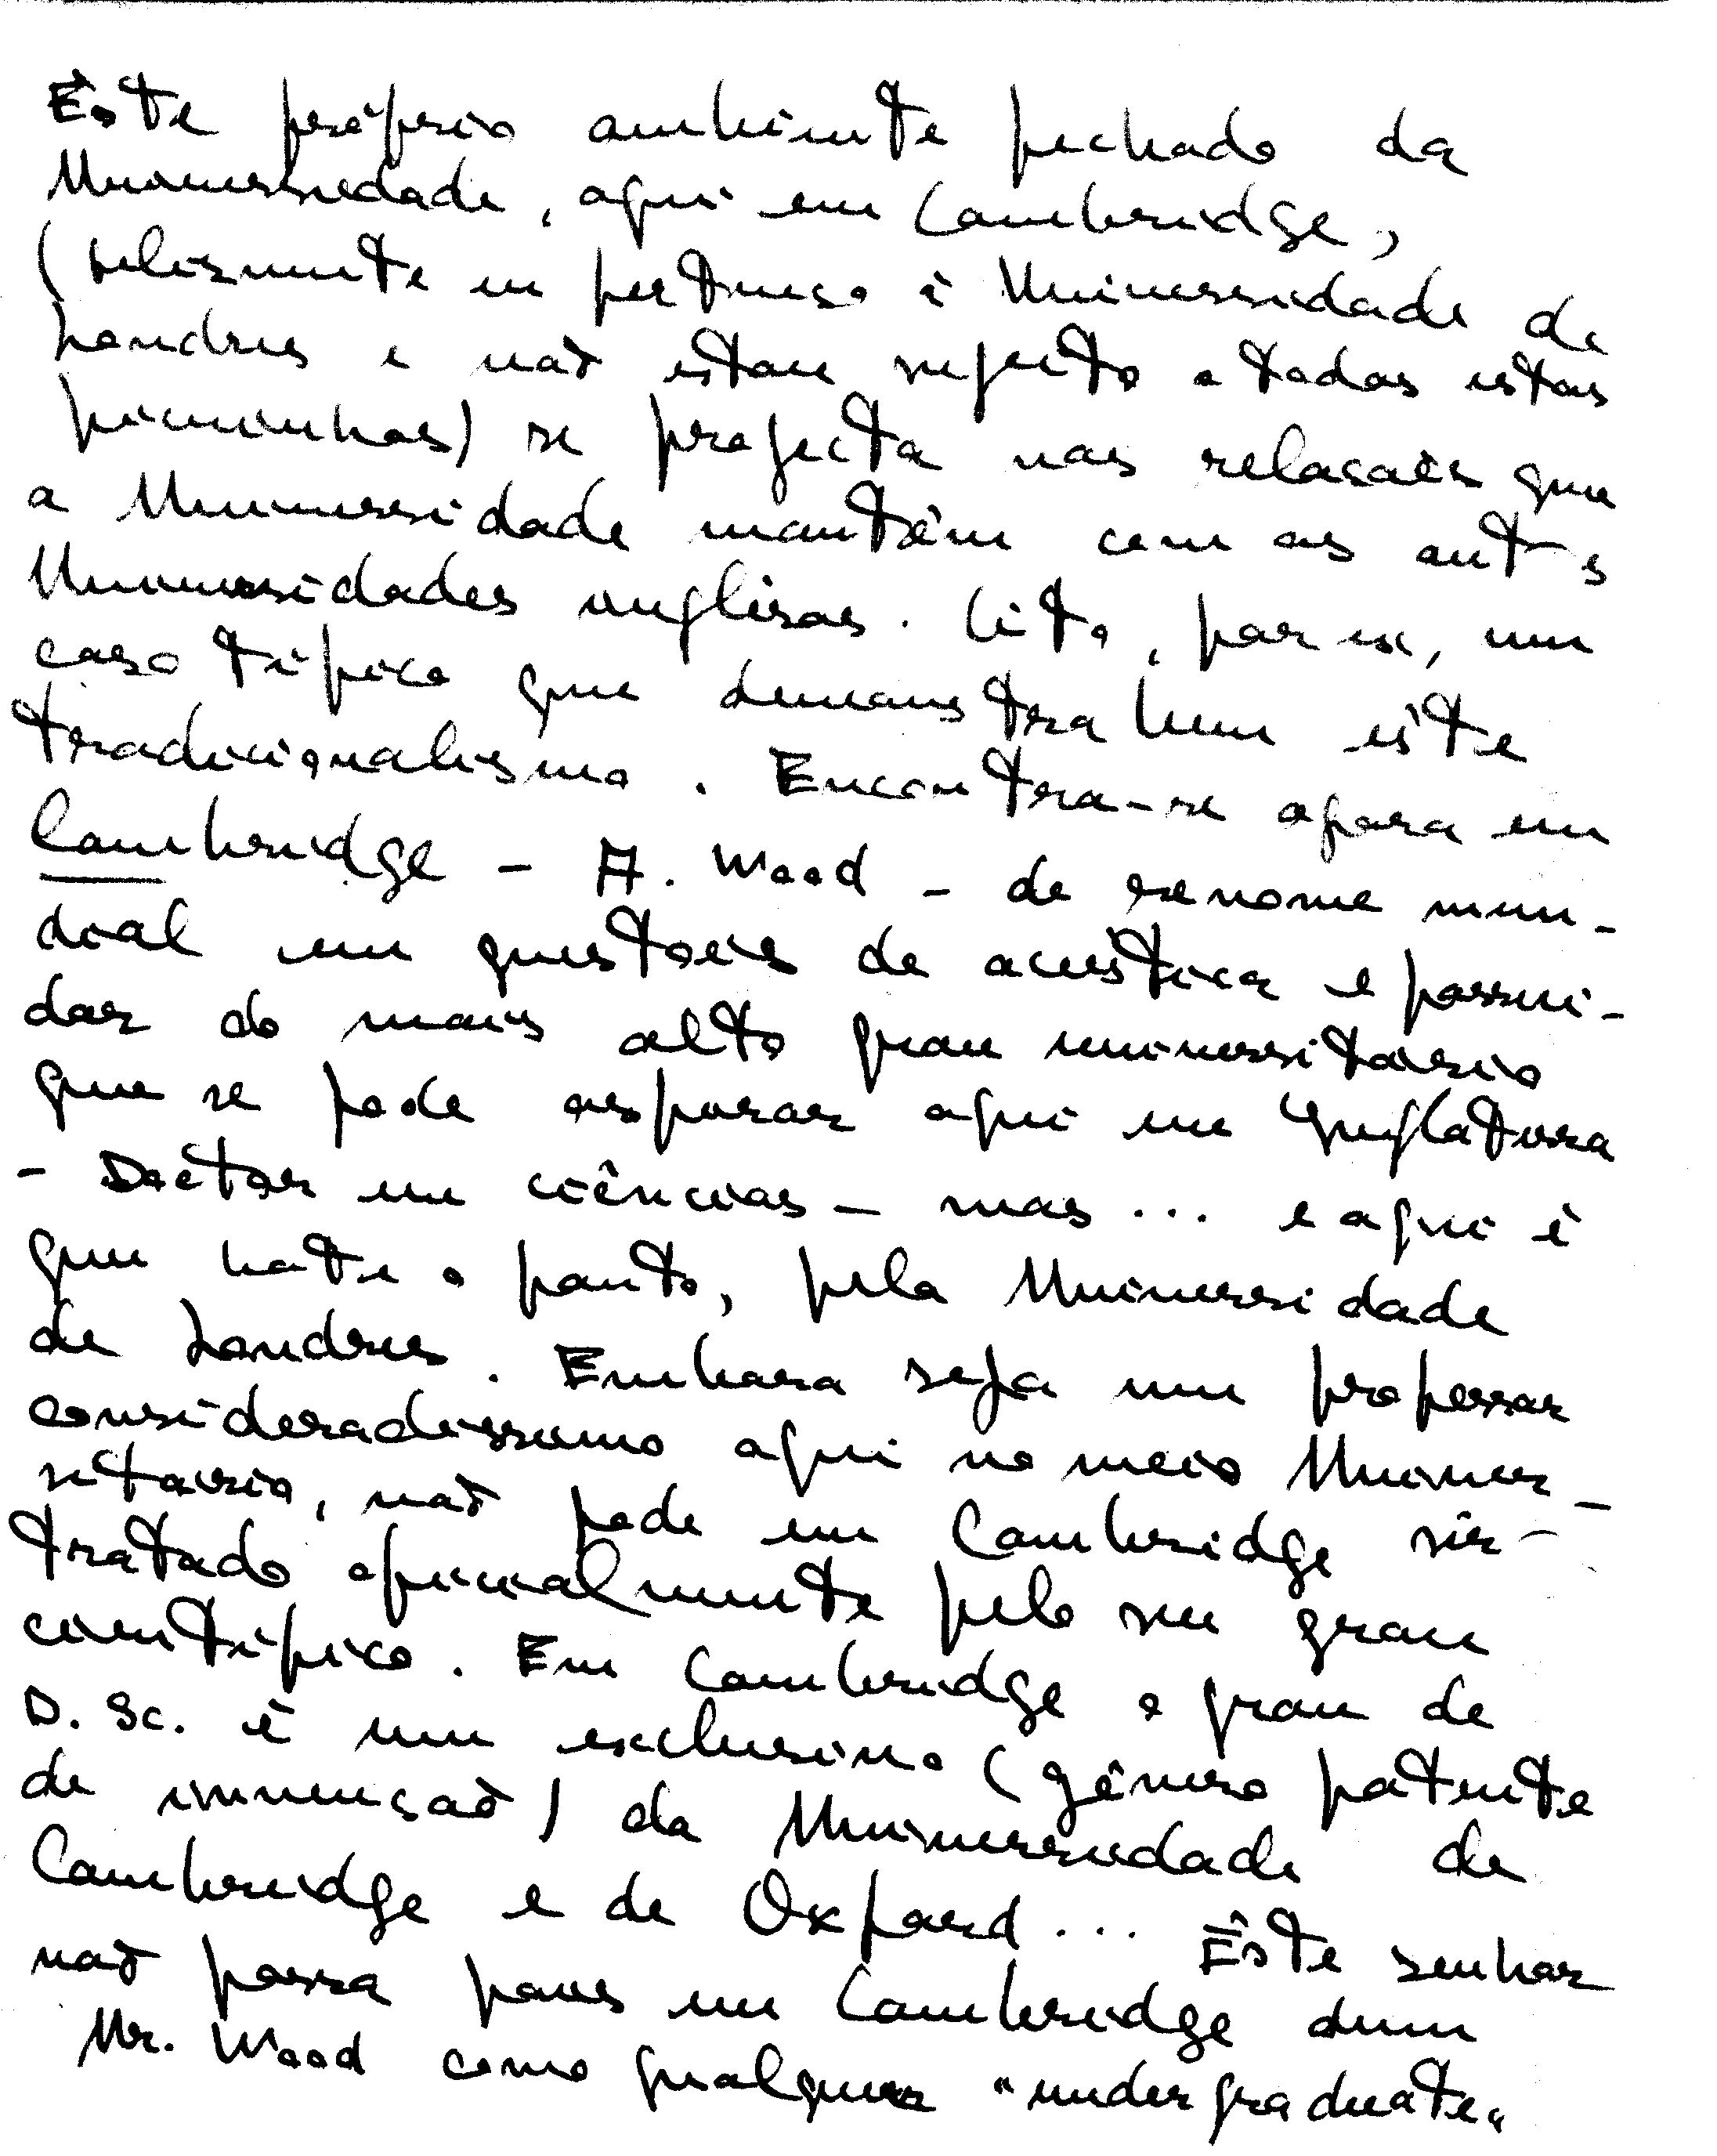 Êste próprio ambiente fechado da
Universidade, aqui em Cambridge,
(felizmente eu pertenço à Universidade de
Londres e não estou sujeito a todas estas
picuinhas) se projecta nas relações que
a Universidade mantém com as outras
Universidades inglêsas. Cito, por ex, um
caso típico que demonstra bem êste
tradicionalismo. Encontra-se agora em
Cambridge - A. Wood - de renome mun-
dial em questões de acústica e possui-
dor do mais alto grau universitário
que se pode aspirar aqui em Inglaterra
- Doctor em ciências - mas ... e aqui é
que bate o ponto, pela Universidade
de Londres. Embora seja um professor
consideradíssimo aqui no meio Univer-
sitário, não pode em Cambridge sêr
tratado oficialmente pelo seu grau
científico. Em Cambridge o grau de
D. Sc. é um exclusivo (gênero patente
de invenção) da Universidade de
Cambridge e de Oxford ... Êste senhor
não passa pois em Cambridge dum
Mr. Wood como qualquer "undergraduate"